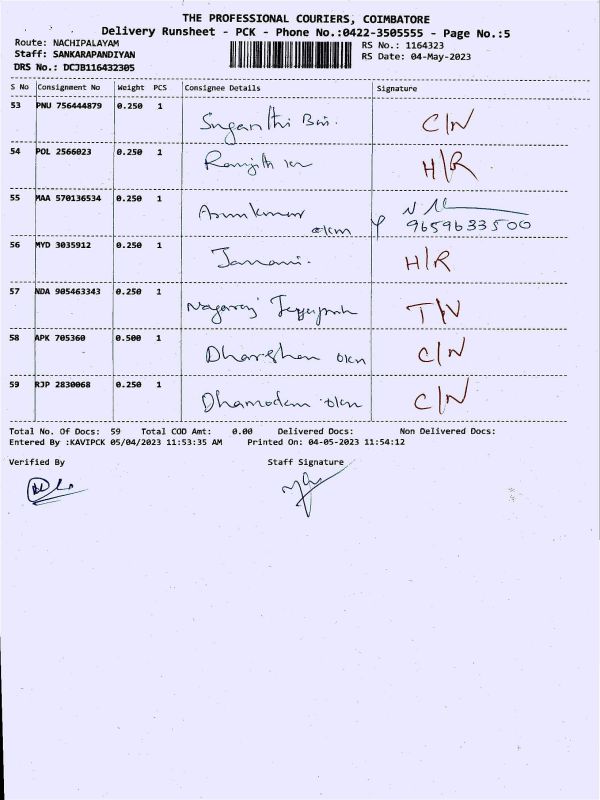 THE PROFESSIONAL COURIERS, COIMBATORE
Delivery Runsheet - PCK - Phone No.:0422-3505555 - Page No.:5
Route: NACHIPALAYAM RS No.: 1164323
Staff: SANKARAPANDIYAN RS Date: 04-May-2023
DRS No.: DCJB116432305
S No Consignment No Weight PCS Consignee Details Signature
53 PNU 756444879 0.250 1 Suganthi Bai. C/N
54 POL 2566023 0.250 1 Ranjith kr H/R
55 MAA 570136534 0.250 1 Arunkumar okm 9659633500
56 MYD 3035912 0.250 1 Janani. H/R
57 NDA 905463343 0.250 1 Nagaraj T/N
58 APK 705360 0.500 1 Dharshan okm C/N
59 RJP 2830068 0.250 1 Dhamodaran okm C/N
Total No. Of Docs: 59 Total COD Amt: 0.00 Delivered Docs: Non Delivered Docs:
Entered By :KAVIPCK 05/04/2023 11:53:35 AM Printed On: 04-05-2023 11:54:12
Verified By Staff Signature